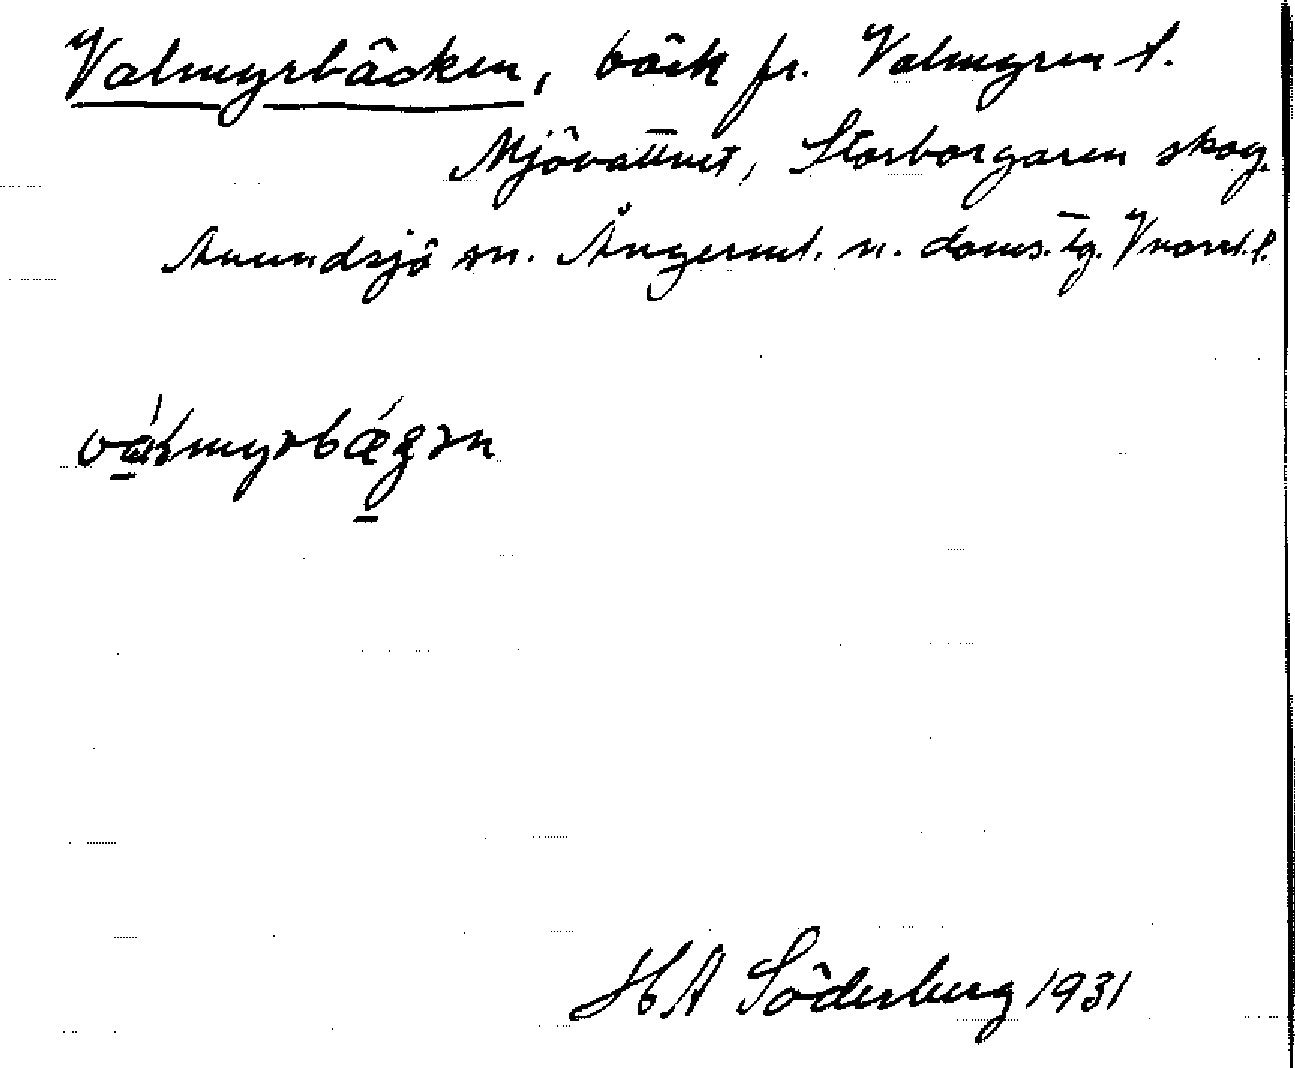 Valmyrbäcken, bäck fr. Valmyren t.
Mjövattnet, Storborgaren skog.
Anundsjö sn. Ångerml. n. doms. tg. Vnorrl. l.
H A Söderberg 1931